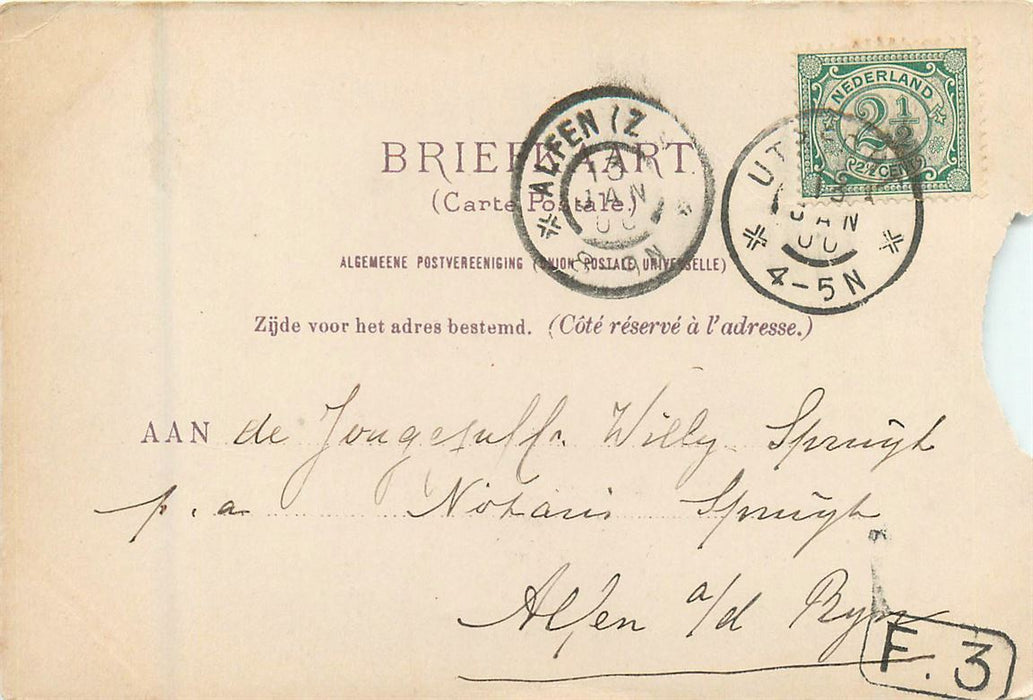 NEDERLAND
2 1/2
2 1/2 CENT
ALFEN (Z.
13
JAN
00
8-9N
UTR
13
JAN
00
4-5N
BRIEFKAART
(Carte Postale.)
ALGEMEENE POSTVEREENIGING (UNION POSTALE UNIVERSELLE)
Zijde voor het adres bestemd. (Côté réservé à l'adresse.)
AAN de Jongejuffr. Willy Spruyt
p. a Notaris Spruyt
Alfen a/d Ryn
F. 3